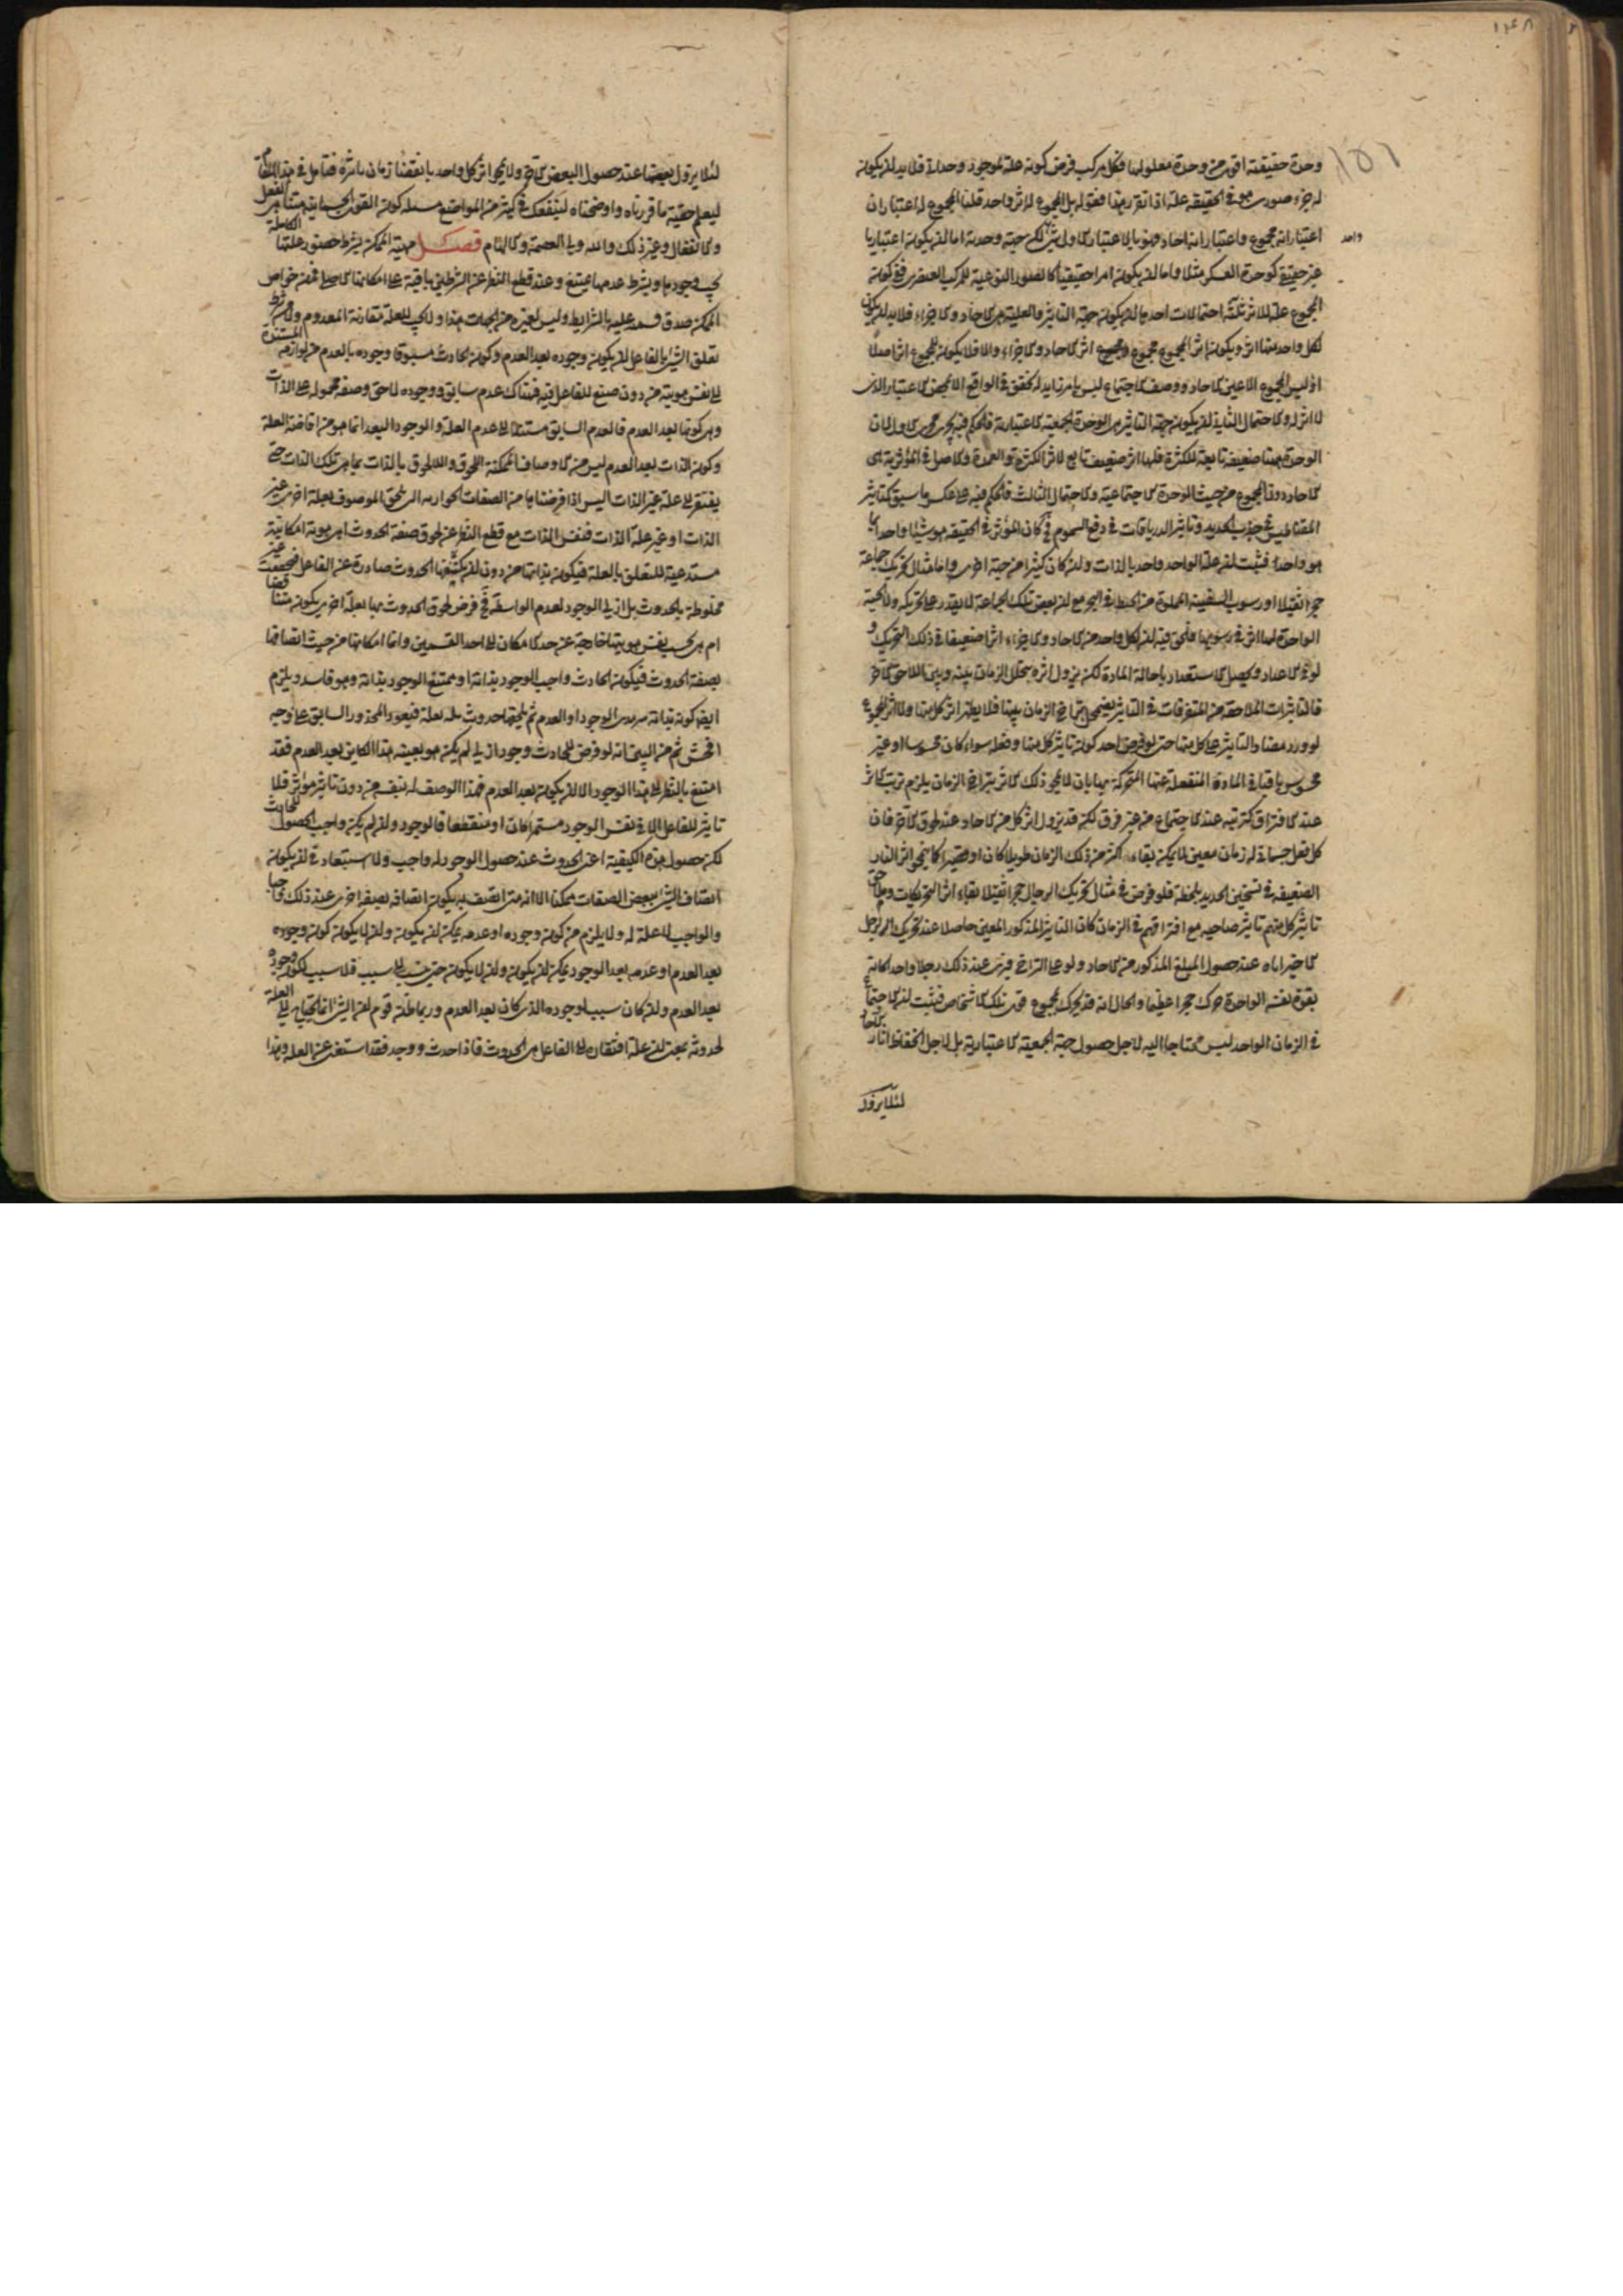 وحدة حقيقته اقوى من وحدة معلولها فكل مركب فرض كونه علة لموجود وحداني فلابد ان يكون
له جزء صوري هو في الحقيقة علة اذا تقرر هذا فقوله بل المجموع له اثر واحد قلنا المجموع له اعتباران
اعتبار انه مجموع واعتبار انه احاد وهو بالاعتبار الاول شئ له جهة وحدة اما ان يكون اعتباريا
واحد
غير حقيقي كوحدة العسكر مثلا واما ان يكون امرا حقيقيا كالصور النوعية للمركب العنصري ففي كون
المجموع علة للاثر ثلثة احتمالات احدها ان يكون جهة التاثير والعلية هي الاحاد والاجزاء فلابد ان يكون
لكل واحد منها اثر ويكون اثر المجموع مجموع اثر الاحاد والاجزاء والا فلا يكون للمجموع اثر اصلا
اذ ليس المجموع الا عين الاحاد ووصف الاجتماع ليس بامر زايد له تحقق في الواقع الا بمحض الاعتبار الذي
لا اثر له والاحتمال الثاني ان يكون جهة التاثير هي الوحدة الجمعية الاعتبارية فالحكم فيه يجري مجرى الاول لان
الوحدة ههنا ضعيفة تابعة للكثرة فلها اثر ضعيف تابع لاثر الكثرة والعمدة والاصل في المؤثرية هي
الاحاد دون المجموع من حيث الوحدة الاجتماعية والاحتمال الثالث فالحكم فيه على عكس ما سبق كتاثير
المقناطيس في جذب الحديد وتاثير الدرياقات في دفع السموم فكان المؤثر في الحقيقة هو شيئا واحدا بما
هو واحد فثبت ان علة الواحد واحد بالذات وان كان كثيرا من جهة اخرى واما مثال تحريك جماعة
حجرا ثقيلا او رسوب السفينة المملوة من الحنطة في البحر مع ان بعض تلك الجماعة لا يقدر على تحريكه ولا الحبة
الواحدة لها اثر في رسوبها فالحق فيه ان لكل واحد من الاحاد والاجزاء اثرا ضعيفا في ذلك التحريك و
لو في الاعداد وتحصيل الاستعداد باحالة المادة لكن يزول اثره بتخلل الزمان بينه وبين اللاحق الاخر
فالتاثيرات المتلاحقة من المتفرقات في التاثير ينمحي بتراخي الزمان بينها فلا يظهر اثر كل منها ولا اثر المجموع
لو ورد مضاد التاثير على كل منها حتى لو فرض احد كون تاثير كل منها وفعله سواء كان محسوسا او غير
محسوس باقيا في المادة المنفعلة عنها المتحركة بها بان لا يمحو ذلك الاثر بتراخي الزمان يلزم ترتب الاثر
عند الافتراق كترتبه عند الاجتماع من غير فرق لكنه قد يزول اثر كل من الاحاد عند لحوق الاخر فان
كل فعل جسماني له زمان معين لا يمكن بقاءه اكثر من ذلك الزمان طويلا كان او قصيرا كما ينمحي اثر النار
الضعيفة في تسخين الحديد بلحظة فلو فرض في مثال تحريك الرجال حجرا ثقيلا بقاء اثر التحريكات ولحوق
تاثير كل منهم تاثير صاحبه مع افتراقهم في الزمان كان التاثير المذكور المعين حاصلا عند تحريك الرجل
الاخير اياه عند حصول المبلغ المذكور من الاحاد ولو على التراخي فترى عند ذلك رجلا واحدا كانه
بقوة نفسه الواحدة حرك حجرا عظيما والحال انه قد يحرك بمجموع قوى تلك الاشخاص فثبت ان الاجتماع
في الزمان الواحد ليس محتاجا اليه لاجل حصول جهة الجمعية الاعتبارية بل لاجل انحفاظ اثار الاحاد
لئلا يزول
لئلا يزول بعضها عند حصول البعض الاخر ولا يمحو اثر كل واحد بانقضاء زمان تاثره فتامل في هذا المقام
ليعلم حقية ما قررناه واوضحناه لينفعك في كثير من المواضع كمسئلة كون القوى الجسمانية متناهي الفعل
والانفعال وغير ذلك والله ولي العصمة والالهام فصل مهية الممكن بشرط حضور علتها الكاملة
يجب وجودها وبشرط عدمها يمتنع وعند قطع النظر عن الشرطين باقية على امكانها الاصلي فمن خواص
الممكن صدق قسيميه عليه بالشرايط وليس لغيره من الجهات هذا ولا يجب للعلة مقارنة المعدوم ولا من شرط
تعلق الشئ بالفاعل ان يكون وجوده بعد العدم وكون الحادث مسبوقا وجوده بالعدم من لوازمه المستندة
الى نفس هويته من دون صنع للفاعل فيه فهناك عدم سابق ووجود لاحق وصفة محمولة على الذات
وهي كونها بعد العدم فالعدم السابق مستند الى عدم العلة والوجود البعد انما هو من افاضة العلة
وكون الذات بعد العدم ليس من الاوصاف الممكنة اللحوق واللا لحوق بالذات بما هي تلك الذات حتى
يفتقر الى علة غير الذات اليس اذا فرضناها من الصفات الجوازية التي تلحق الموصوف بعلة اخرى غير
الذات او غير علة الذات فنفس الذات مع قطع النظر عن لحوق صفة الحدوث اهي هوية امكانية
مستدعية للتعلق بالعلة فيكون بذاتها من دون ان يكتنفها الحدوث صادرة عن الفاعل فتحققت غير
مخلوطة بالحدوث بل ازلي الوجود لعدم الواسطة ففي فرض لحوق الحدوث بها بعلة اخرى يكون تناقضا
ام هي بحسب نفس هويتها خارجة عن حد الامكان الى احد القسمين وانما امكانها من حيث اتصافها
بصفة الحدوث فيكون الحادث واجب الوجود بذاته او ممتنع الوجود بذاته وهو فاسد ويلزم
ايضا كونه بذاته سرمدي الوجود او العدم ثم يلحقه حدوث بعلة فيعود المحذور السابق على وجه
افحش ثم من البين انه لو فرض للحادث وجود ازلي لم يكن هو بعينه هذا الكاين بعد العدم فقد
امتنع بالنظر الى هذا الوجود الا ان يكون بعد العدم فهذا الوصف له بنفسه من دون تاثير مؤثر فلا
تاثير للفاعل الا في نفس الوجود مستمرا كان او منقطعا فالوجود وان لم يكن واجب الحصول للحادث
لكن حصول هذه الكيفية اعني الحدوث عند حصول الوجود له واجب ولا استبعاد في ان يكون
اتصاف الشئ ببعض الصفات ممكنا الا انه متى اتصف به يكون اتصافه بصفة اخرى عند ذلك واجبا
والواجب لا علة له ولا يلزم من كون وجوده او عدمه يمكن ان يكون وان لا يكون كون وجوده
بعد العدم او عدمه بعد الوجود يمكن ان يكون وان لا يكون حتى ينسب الى سبب فلا سبب لكون وجوده
بعد العدم وان كان سبب لوجوده الذي كان بعد العدم وربما ظن قوم ان الشئ انما يحتاج الى العلة
لحدوثه بمعنى ان علة افتقاره الى الفاعل هي الحدوث فاذا حدث ووجد فقد استغنى عن العلة وهذا